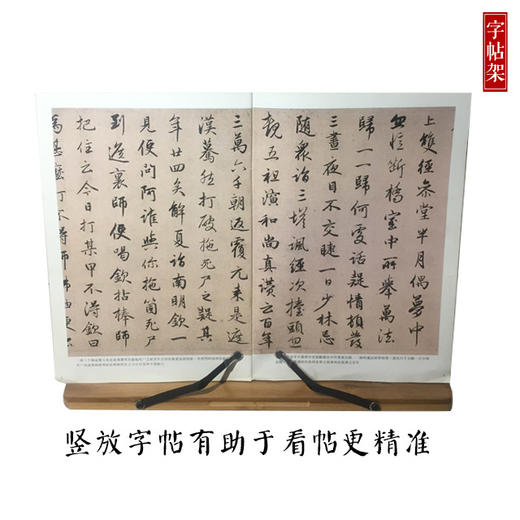 字帖架
上雙徑參堂半月偶夢中
忽憶斷橋室中所舉萬法
歸一一歸何處話疑情頓發
三晝夜目不交睫一日少林忌
隨衆詣三塔諷經次擡頭忽
覩五祖演和尚真讚云百年
三萬六千朝返覆元来是遮
漢驀然打破拖死尸之疑其
年廿四矣解夏詣南明欽一
見便問阿誰與你拖箇死尸
到這裏師便喝欽拈棒師
把住云今日打某甲不得欽曰
爲甚麼打不得師
竖放字帖有助于看帖更精准